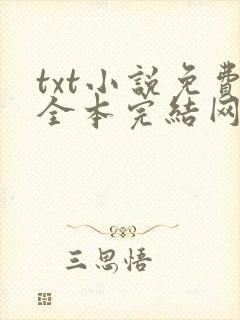 txt小説免費
全本完結网
三思悟